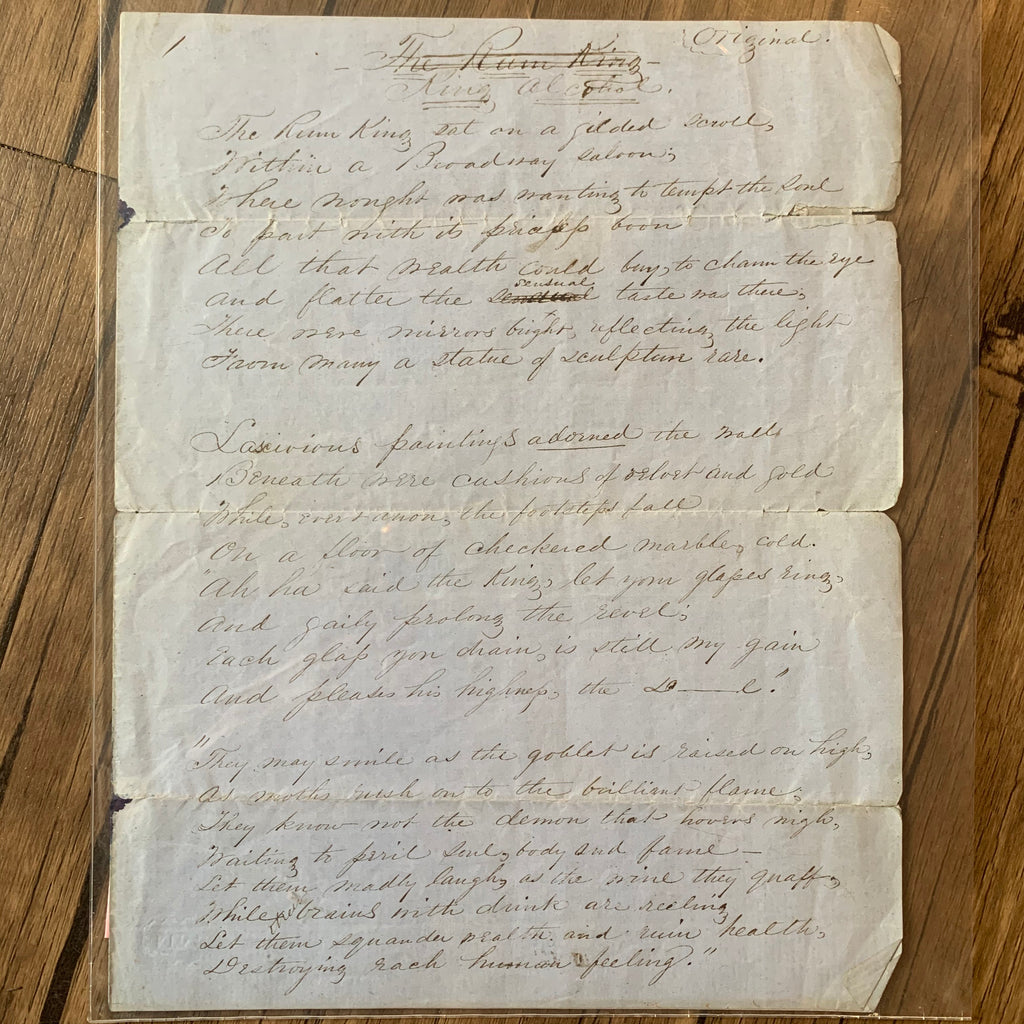 1
Original.
- The Rum King -
King Alcohol.
The Rum King sat on a gilded scroll,
Within a Broadway saloon;
Where nought was wanting to tempt the soul
To part with its priceless boon
All that wealth could buy, to charm the eye
sensual
and flatter the sensual taste was there;
There were mirrors bright, reflecting the light
From many a statue of sculpture rare.
Lascivious paintings adorned the walls
Beneath were cushions of velvet and gold
While, ever & anon, the footsteps fall
On a floor of checkered marble, cold.
"Ah ha" said the King, let your glasses ring,
And gaily prolong the revel;
Each glass you drain, is still my gain
And pleases his highness, the D——l."
"They may smile as the goblet is raised on high,
As moths rush on to the brilliant flame;
They know not the demon that hovers nigh,
Waiting to peril soul, body and fame —
Let them madly laugh, as the wine they quaff,
While brains with drink are reeling
Let them squander wealth and ruin health,
Destroying each human feeling."